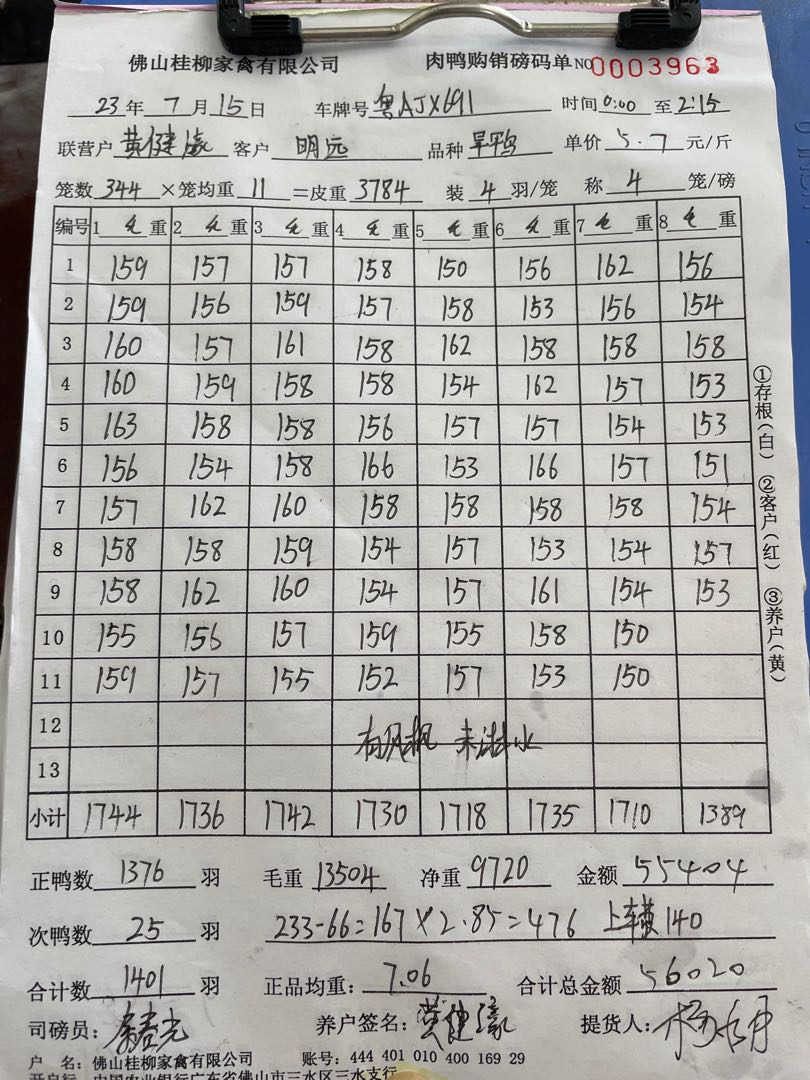 佛山桂柳家禽有限公司 肉鸭购销磅码单 NO 0003963
23年7月15日 车牌号 粤AJX691 时间 0:00 至 2:15
联营户 黄健濠 客户 明远 品种 旱鸭 单价 5.7 元/斤
笼数 344 ×笼均重 11 =皮重 3784 装 4 羽/笼 称 4 笼/磅
编号 1 毛重 2 毛重 3 毛重 4 毛重 5 毛重 6 毛重 7 毛重 8 毛重
1 159 157 157 158 150 156 162 156
2 159 156 159 157 158 153 156 154
3 160 157 161 158 162 158 158 158
4 160 159 158 158 154 162 157 153
5 163 158 158 156 157 157 154 153
6 156 154 158 166 153 166 157 151
7 157 162 160 158 158 158 158 154
8 158 158 159 154 157 153 154 157
9 158 162 160 154 157 161 154 153
10 155 156 157 159 155 158 150
11 159 157 155 152 157 153 150
12
13
小计 1744 1736 1742 1730 1718 1735 1710 1389
①存根(白) ②客户(红) ③养户(黄)
正鸭数 1376 羽 毛重 13504 净重 9720 金额 55404
次鸭数 25 羽 233-66=167×2.85=476 上车费140
合计数 1401 羽 正品均重: 7.06 合计总金额 56020
司磅员: 养户签名: 黄健濠 提货人:
户 名: 佛山桂柳家禽有限公司 账号: 444 401 010 400 169 29
开户行: 中国农业银行广东省佛山市三水区三水支行